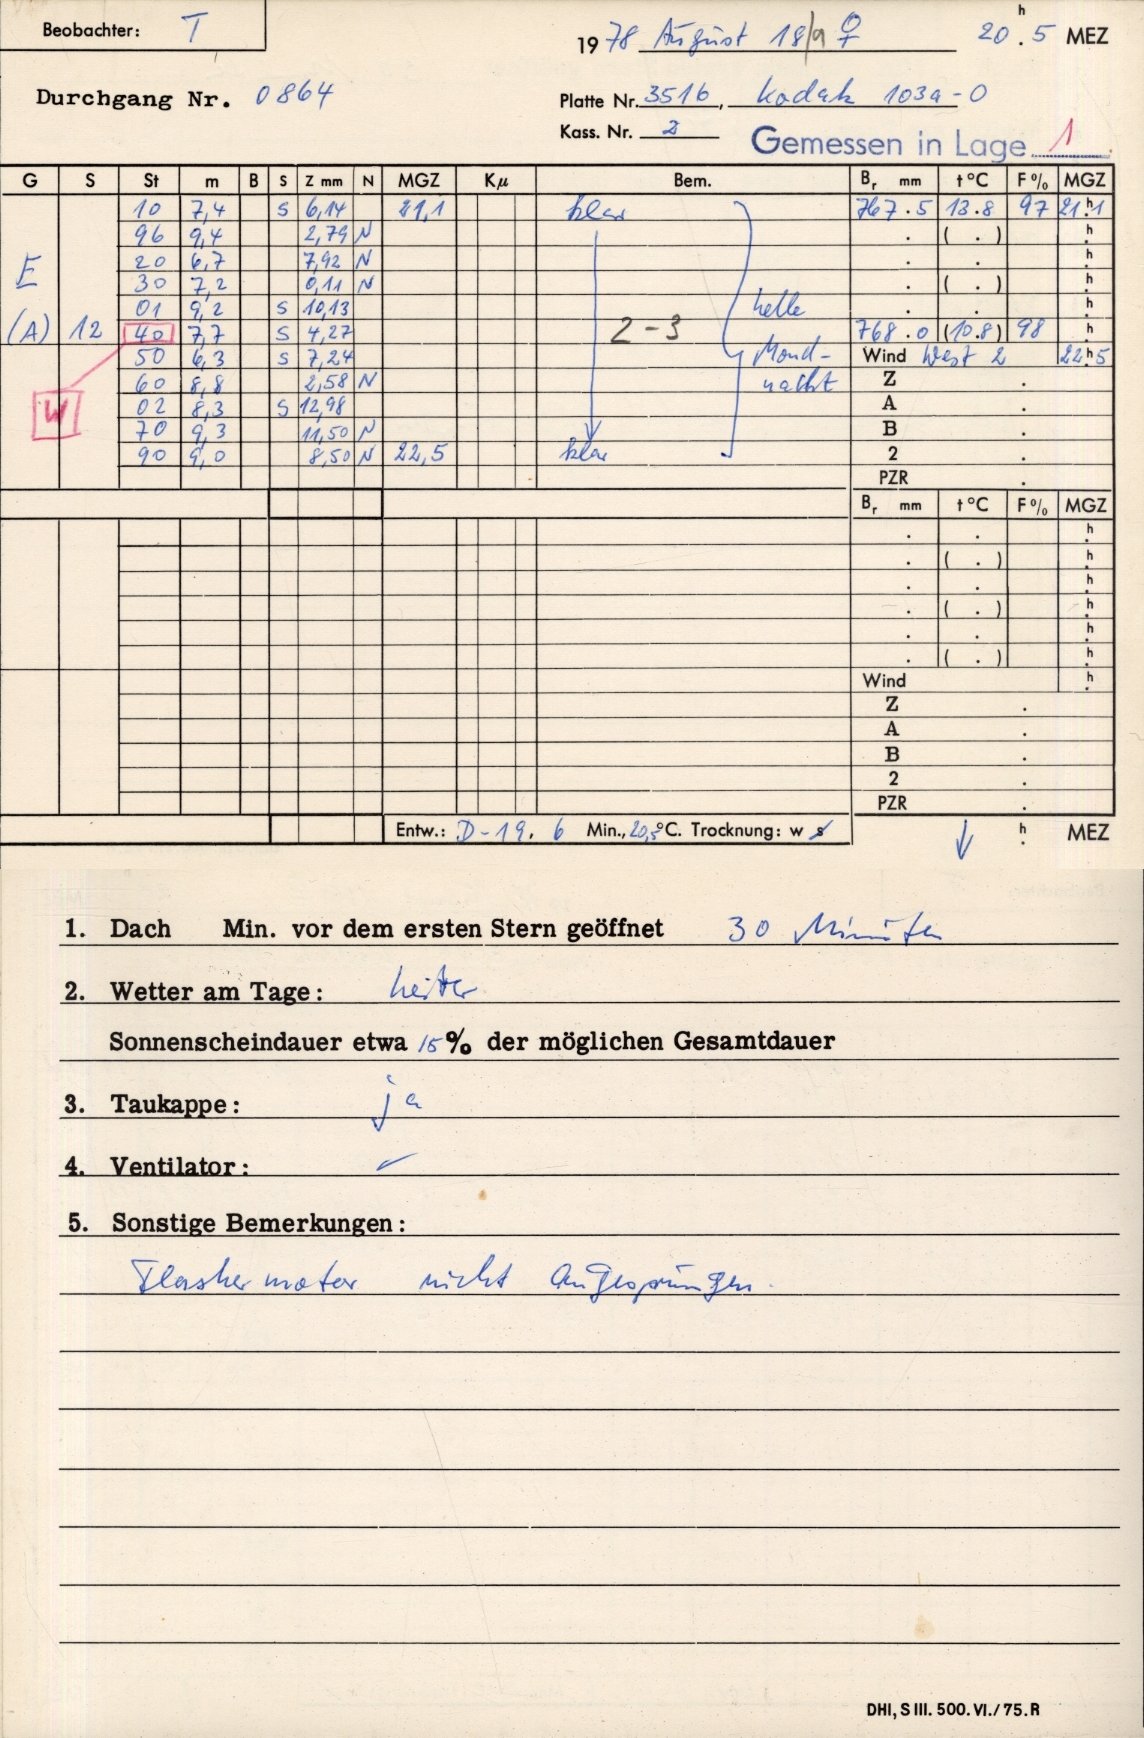 Beobachter: T
1978 August 18/19 ♀ 20h.5 MEZ
Durchgang Nr. 0864
Platte Nr. 3516, Kodak 103a-O
Kass. Nr. 2
Gemessen in Lage 1
G S St m B S Z mm N MGZ Kμ Bem. Br mm t°C F% MGZ
10 7,4 S 6,14 21,1 klar 767.5 13.8 97 21h.1
96 9,4 2,79 N . ( . ) h.
E 20 6,7 7,92 N . . h.
30 7,2 0,11 N . ( . ) h.
01 9,2 S 10,13 helle . . h.
(A) 12 40 7,7 S 4,27 2-3 768.0 (10.8) 98 h.
50 6,3 S 7,24 Mond- Wind West 2 22h.5
60 8,8 2,58 N nacht Z .
W 02 8,3 S 12,98 A .
70 9,3 11,50 N B .
90 9,0 8,50 N 22,5 klar 2 .
PZR .
Br mm t°C F% MGZ
. . h.
. ( . ) h.
. . h.
. ( . ) h.
. . h.
. ( . ) h.
Wind h.
Z .
A .
B .
2 .
PZR .
Entw.: D-19. 6 Min., 20,5°C. Trocknung: w s h. MEZ
1. Dach Min. vor dem ersten Stern geöffnet 30 Minuten
2. Wetter am Tage: heiter
Sonnenscheindauer etwa 15% der möglichen Gesamtdauer
3. Taukappe: ja
4. Ventilator: ✓
5. Sonstige Bemerkungen:
Flashermotor nicht angesprungen.
DHI, S III. 500. VI./75. R